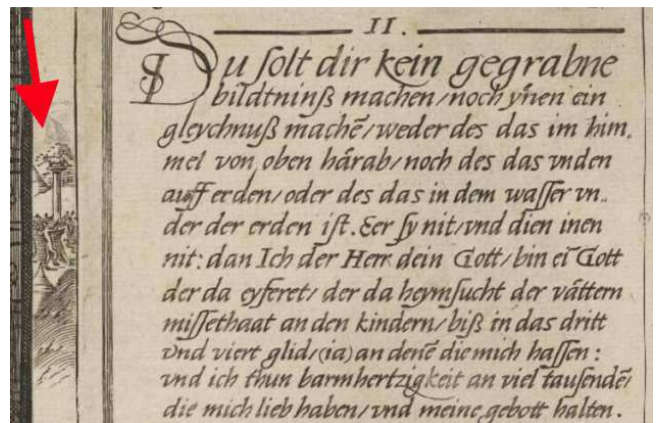 II.
Du solt dir kein gegrabne
bildtninß machen/noch yñen ein
gleychnuß machē/weder des das im him,
mel von oben härab/noch des das vnden
auff erden/oder des das in dem wasser vn..
der der erden ist. Eer sy nit/vnd dien inen
nit: dan Ich der Herr dein Gott/bin eī Gott
der da eyferet/ der da heymsucht der vättern
missethaat an den kindern/biß in das dritt
vnd viert glid/(ia) an denē die mich hassen :
vnd ich thun barmhertzigkeit an viel tausendē/
die mich lieb haben/vnd meine gebott halten.